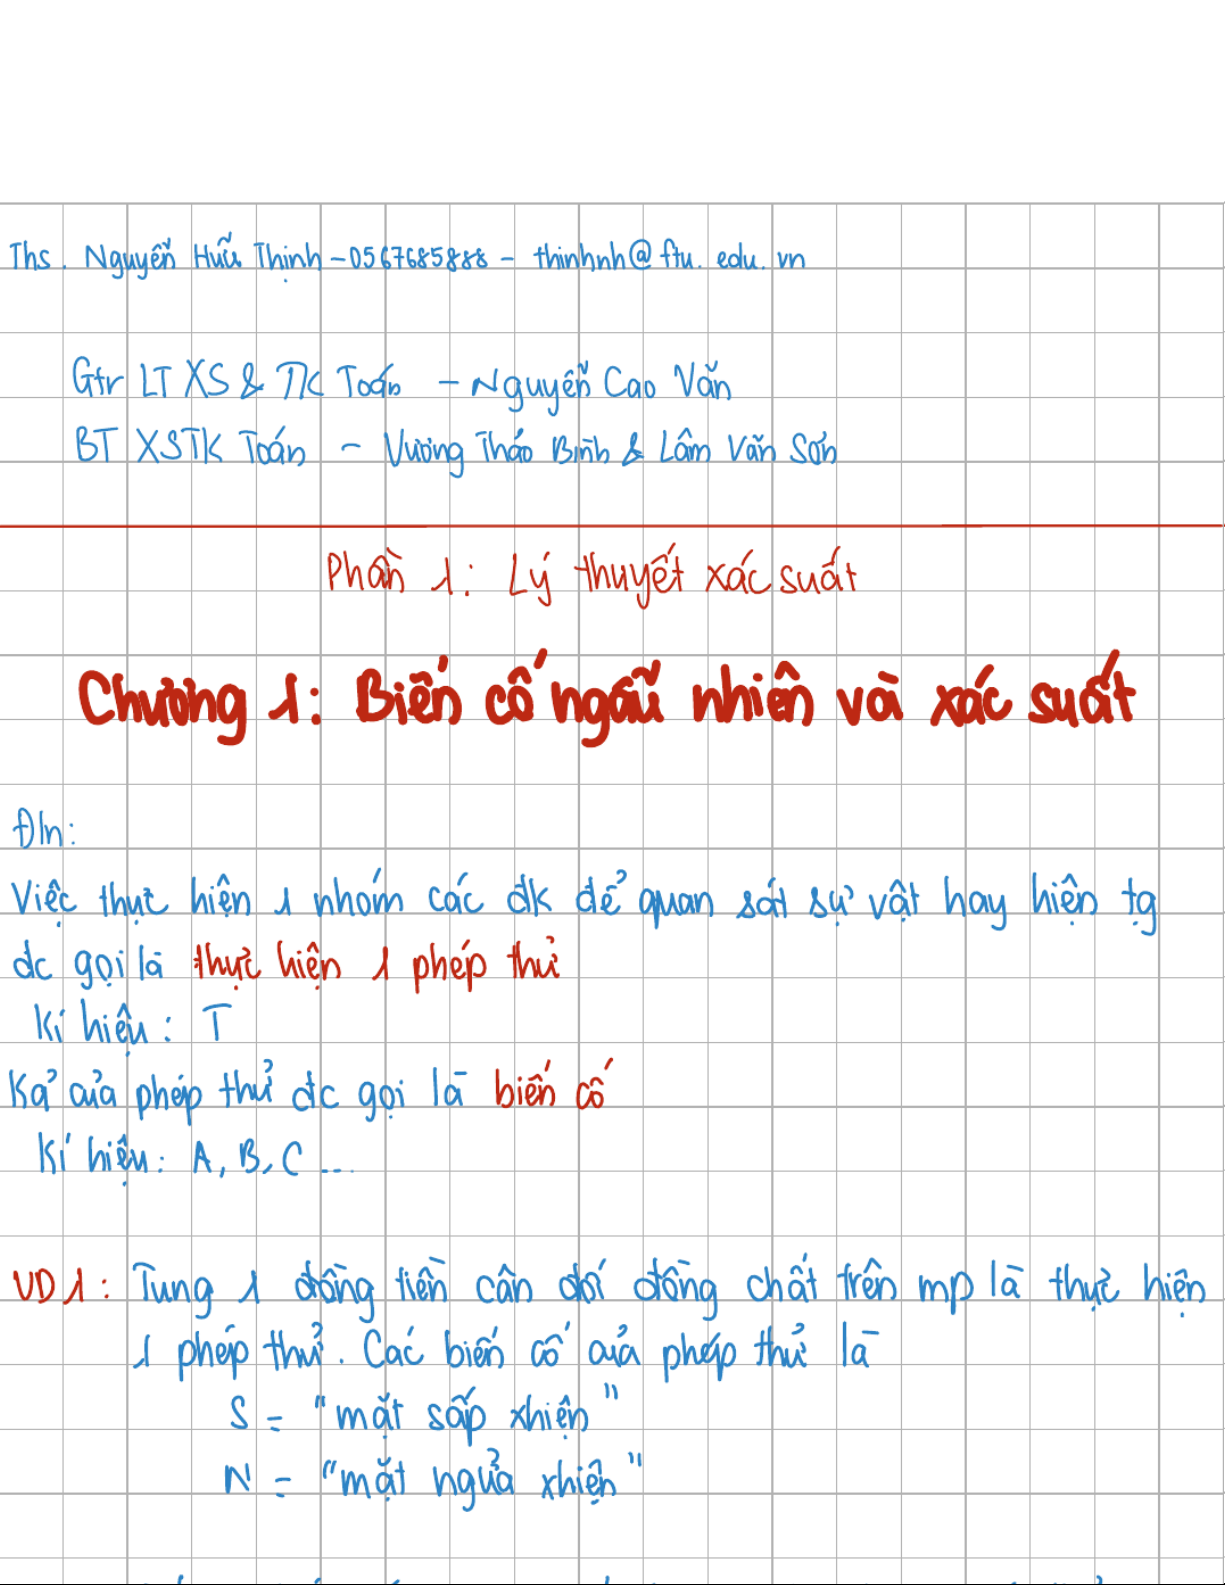 Ths. Nguyễn Hữu Thịnh - 0567685888 - thinhnh@ftu.edu.vn
Gtr LT XS & TK Toán - Nguyễn Cao Văn
BT XSTK Toán - Vương Thảo Bình & Lâm Văn Sơn
Phần 1: Lý thuyết xác suất
Chương 1: Biến cố ngẫu nhiên và xác suất
Đ/n:
Việc thực hiện 1 nhóm các đk để quan sát sự vật hay hiện tg
đc gọi là thực hiện 1 phép thử
Kí hiệu: T
Kq của phép thử đc gọi là biến cố
Kí hiệu: A, B, C ...
VD1: Tung 1 đồng tiền cân đối đồng chất trên mp là thực hiện
1 phép thử. Các biến cố của phép thử là
S = "mặt sấp xhiện"
N = "mặt ngửa xhiện"